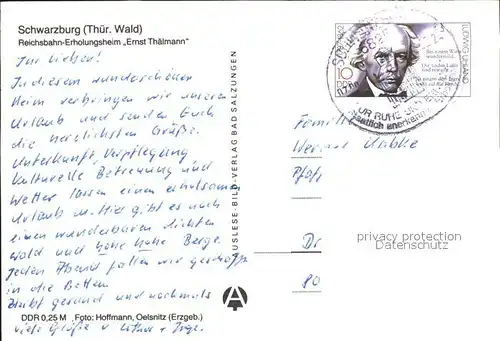 Schwarzburg (Thür. Wald)
Reichsbahn-Erholungsheim „Ernst Thälmann"
Ihr Lieben!
In diesem wunderschönen
Heim verbringen wir unseren
Urlaub und senden Euch
die herzlichsten Grüße.
Unterkunft, Verpflegung
Kulturelle Betreuung und
Wetter lassen einen erholsamen
Urlaub zu. Hier gibt es noch
einen wunderbaren dichten
Wald und hohe Berge.
Jeden Abend fallen wir geschafft
in die Betten.
Bleibt gesund und nochmals
viele Grüße v. Lothar + Inge.
DDR 0,25 M Foto: Hoffmann, Oelsnitz (Erzgeb.)
AUSLESE-BILD-VERLAG BAD SALZUNGEN
A
LUDWIG UHLAND
10
DDR
staatlich anerkannter
Familie
Werner
Dr
privacy protection
Datenschutz